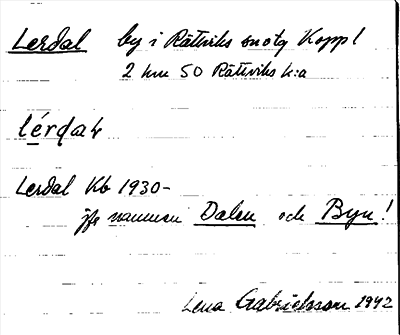 Lerdal by i Rättviks snötg Koppl
2 km SO Rättviks k:a
lérdaɫ
Lerdal Kb 1930-
jfr namnen Dalen och Byn!
Lena Gabrielsson 1942